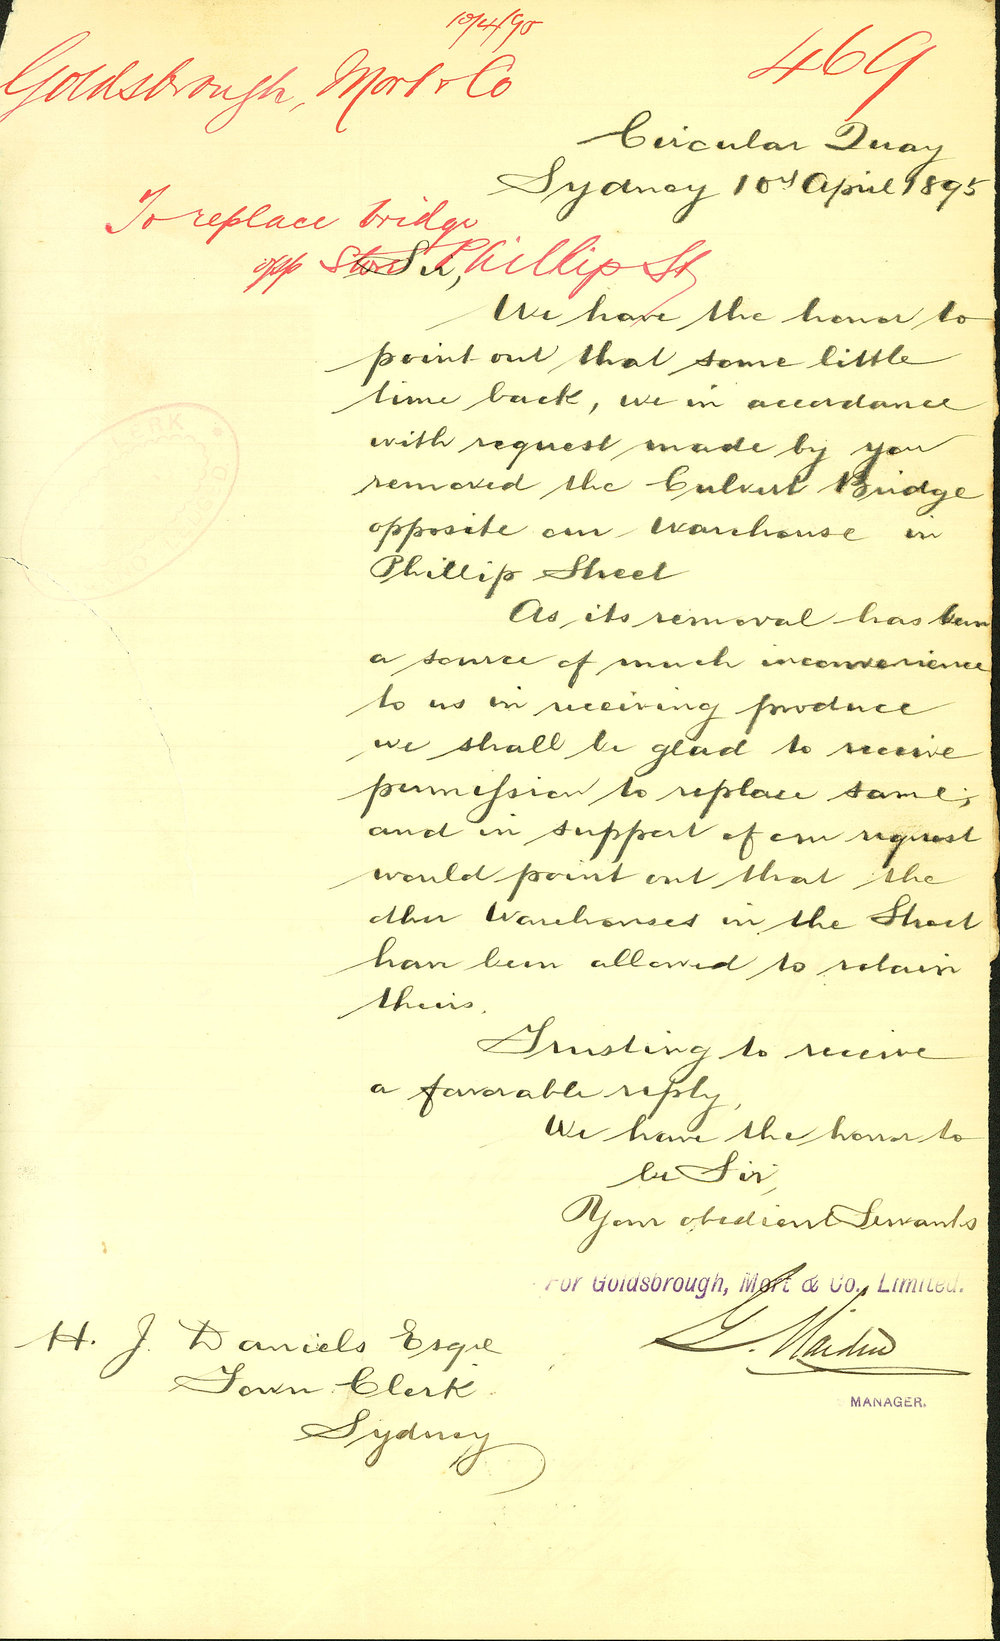 10/4/95
469
Goldsbrough, Mort & Co
Circular Quay
Sydney 10th April 1895
To replace bridge
opp Store Phillip St
Sir,
We have the honor to
point out that some little
time back, we in accordance
with request made by you
removed the Culvert Bridge
opposite our Warehouse in
Phillip Street
As its removal has been
a source of much inconvenience
to us in receiving produce
we shall be glad to receive
permission to replace same;
and in support of our request
would point out that the
other Warehouses in the Street
have been allowed to retain
theirs.
Trusting to receive
a favorable reply,
We have the honor to
be Sir,
Your obedient Servants
For Goldsbrough, Mort & Co., Limited.
G. Maiden
MANAGER.
H. J. Daniels Esqre
Town Clerk
Sydney
CLERK